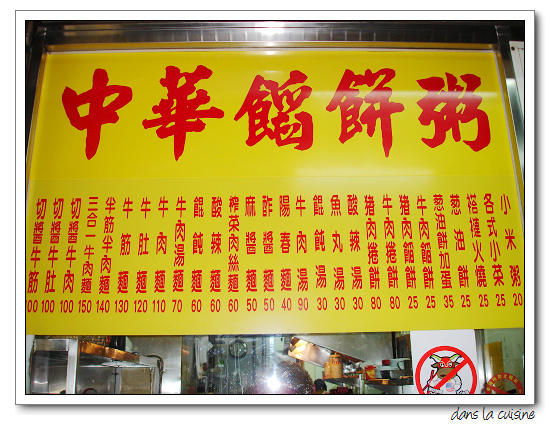 中華餡餅粥
小米粥 20
各式小菜 25
褡褳火燒 25
蔥油餅 25
蔥油餅加蛋 35
牛肉餡餅 25
豬肉餡餅 25
牛肉捲餅 80
豬肉捲餅 80
酸辣湯 30
魚丸湯 30
餛飩湯 30
牛肉湯 90
陽春麵 40
酢醬麵 50
麻醬麵 50
榨菜肉絲麵 60
酸辣麵 60
餛飩麵 60
牛肉湯麵 70
牛肉麵 110
牛肚麵 120
牛筋麵 130
半筋半肉麵 140
三合一牛肉麵 150
切醬牛肉 100
切醬牛肚 100
切醬牛筋 00
dans la cuisine